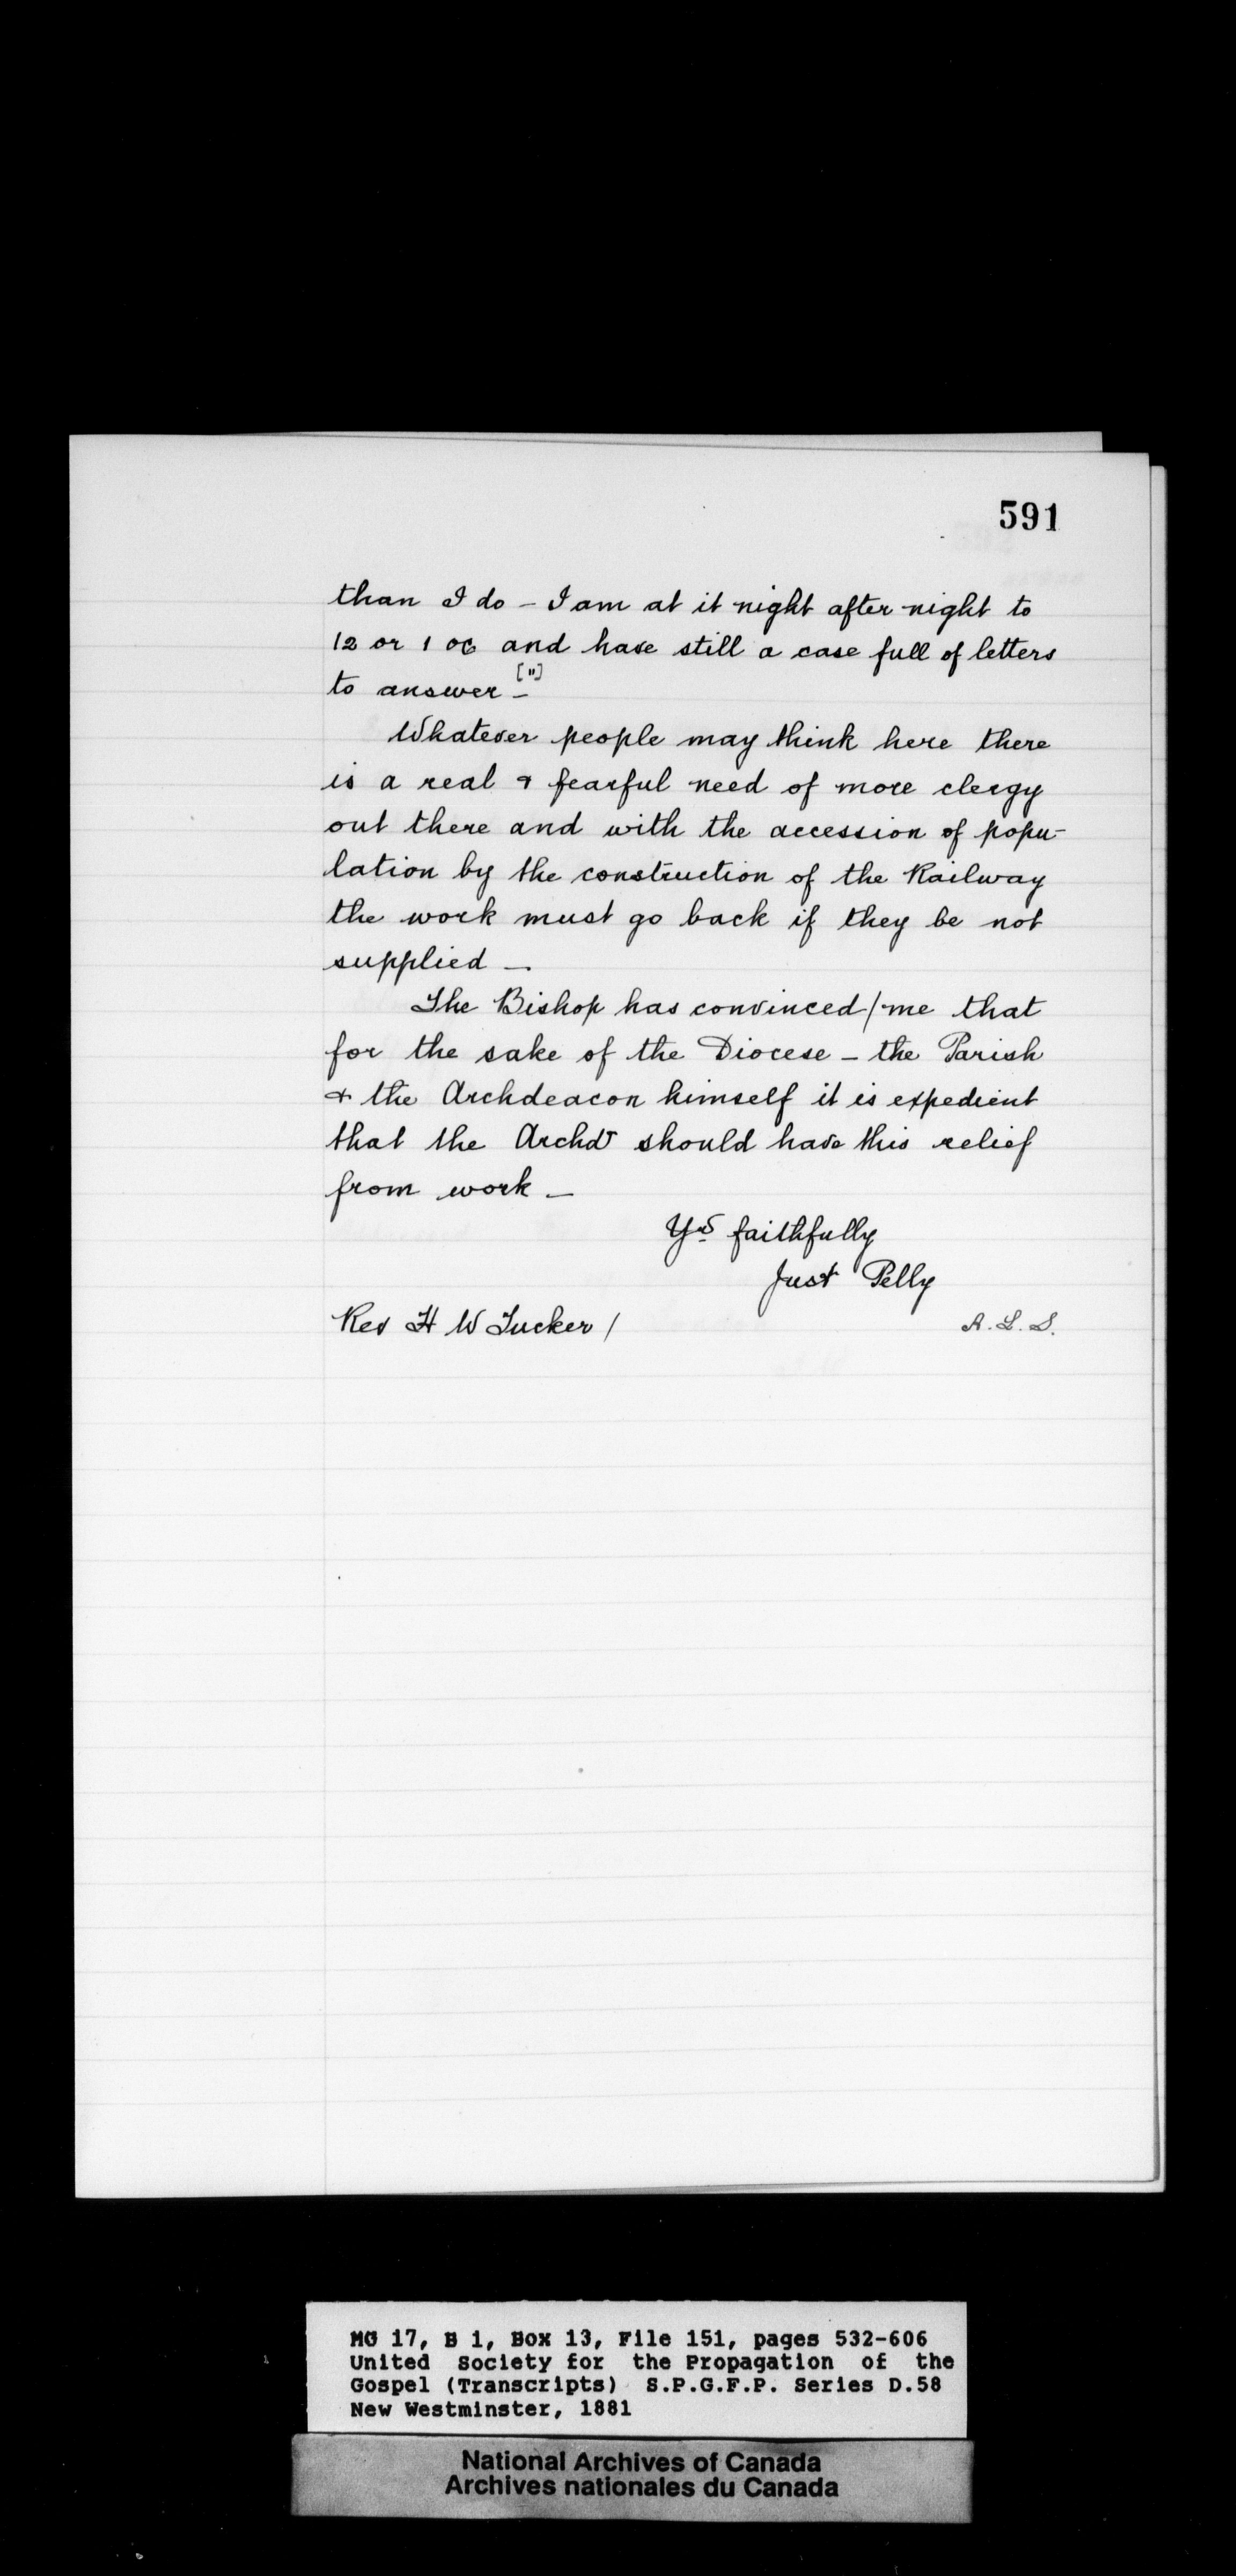 591
than I do - I am at it night after night to
12 or 1 oc and have still a case full of letters
to answer -["]
Whatever people may think here there
is a real & fearful need of more clergy
out there and with the accession of popu-
lation by the construction of the Railway
the work must go back if they be not
supplied -
The Bishop has convinced/me that
for the sake of the Diocese - the Parish
& the Archdeacon himself it is expedient
that the Archd should have this relief
from work -
Yrs faithfully
Just Pelly
Rev H W Tucker /
A. L. S.
MG 17, B 1, Box 13, File 151, pages 532-606
United Society for the Propagation of the
Gospel (Transcripts) S.P.G.F.P. Series D.58
New Westminster, 1881
National Archives of Canada
Archives nationales du Canada